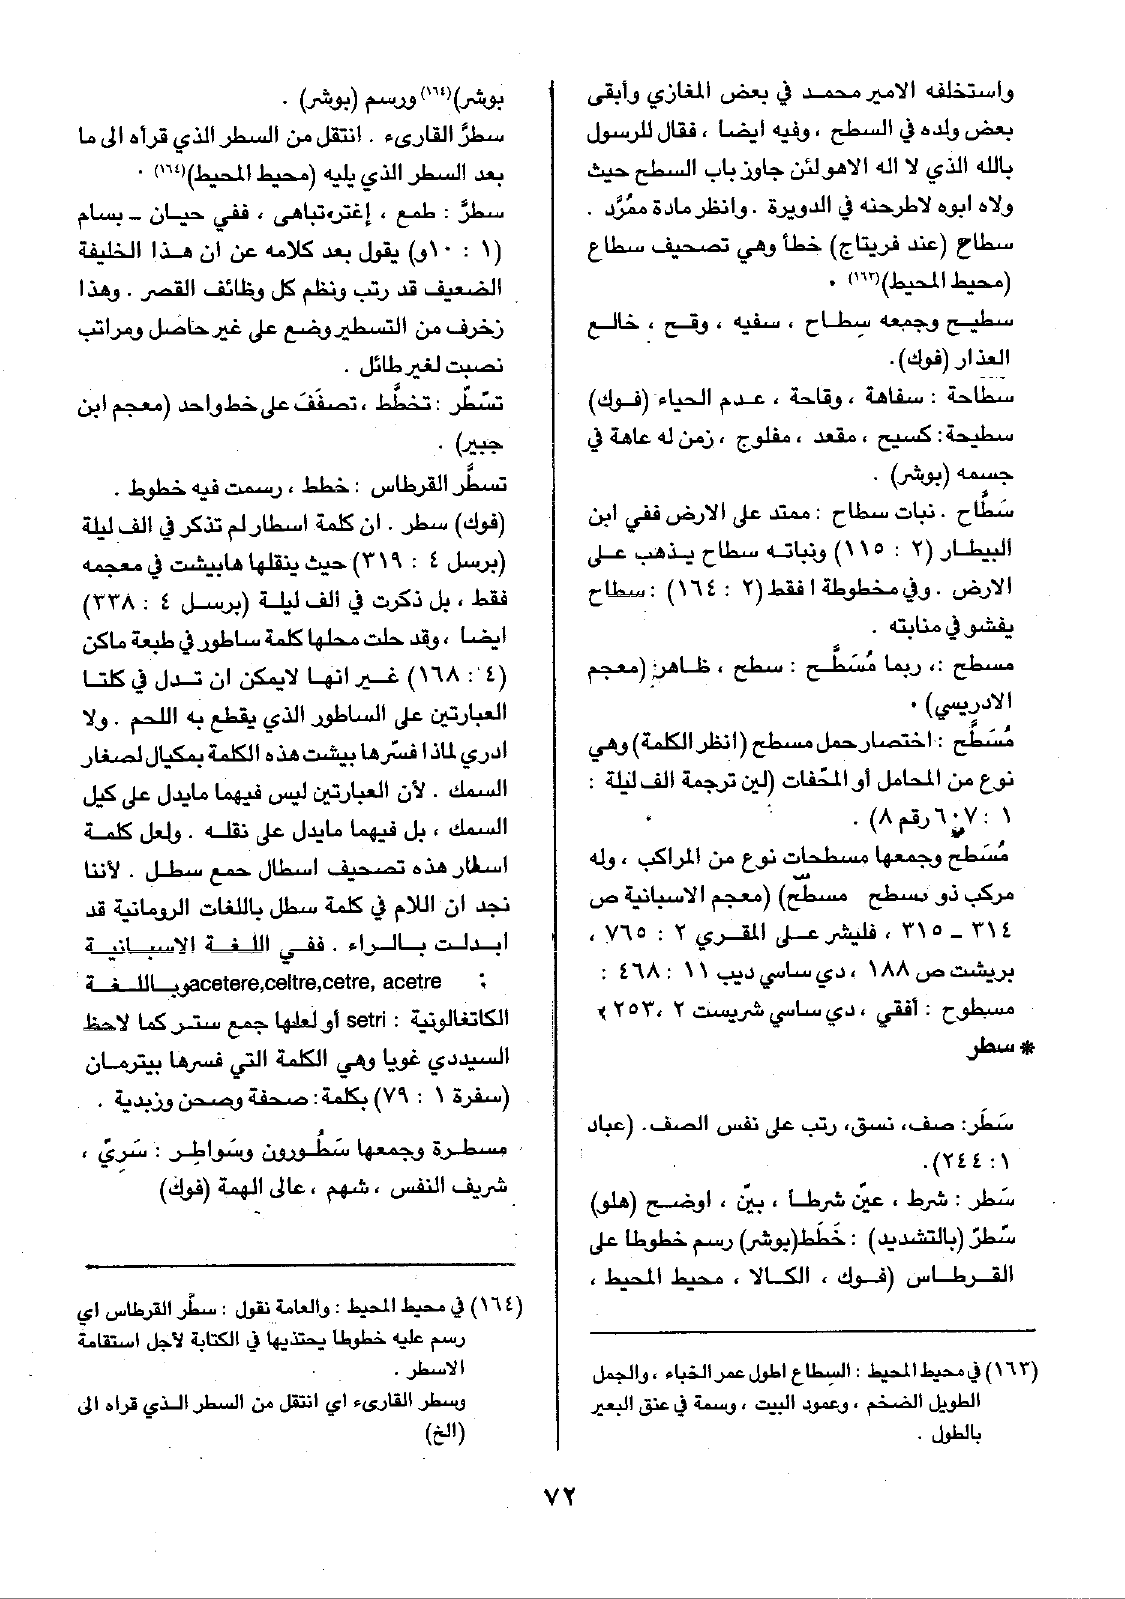 واستخلفه الامير محمد في بعض المغازي وأبقى
بعض ولده في السطح ، وفيه ايضا ، فقال للرسول
بالله الذي لا اله الاهو لئن جاوز باب السطح حيث
ولاه ابوه لاطرحنه في الدويرة . وانظر مادة ممرَّد .
سطاح (عند فريتاج) خطأ وهي تصحيف سطاع
(محيط المحيط)(١٦٣) .
سطيح وجمعه سطاح ، سفيه ، وقح ، خالع
العذار (فوك).
سطاحة : سفاهة ، وقاحة ، عدم الحياء (فوك)
سطيحة: كسيح ، مقعد ، مفلوج ، زمن له عاهة في
جسمه (بوشر) .
سَطَّاح . نبات سطاح : ممتد على الارض ففي ابن
البيطار (٢ : ١١٥) ونباته سطاح يذهب على
الارض . وفي مخطوطة ا فقط (٢ : ١٦٤) : سطاح
يفشو في منابته .
مسطح :، ربما مُسَطَّح : سطح ، ظاهر (معجم
الادريسي) .
مُسَطَّح : اختصار حمل مسطح (انظر الكلمة) وهي
نوع من المحامل أو المحّفات (لين ترجمة الف ليلة :
١ : ٦٠٧ رقم ٨) .
مُسَطح وجمعها مسطحات نوع من المراكب ، وله
مركب ذو سطح مسطح) (معجم الاسبانية ص
٣١٤ - ٣١٥ ، فليشر على المقري ٢ : ٧٦٥ ،
بريشت ص ١٨٨ ، دي ساسي ديب ١١ : ٤٦٨ :
مسطوح : أفقي ، دي ساسي شريست ٢ ، ٢٥٣ )
* سطر
سَطَر: صف، نسق، رتب على نفس الصف. (عباد
١ : ٢٤٤).
سَطر : شرط ، عيّن شرطا ، بيّن ، اوضح (هلو)
سّطرّ (بالتشديد) : خَطَط(بوشر) رسم خطوطا على
القرطاس (فوك ، الكالا ، محيط المحيط ،
(١٦٣) في محيط المحيط : السطاع اطول عمر الخباء ، والجمل
الطويل الضخم ، وعمود البيت ، وسمة في عنق البعير
بالطول .
بوشر)(١٦٤) ورسم (بوشر) .
سطرَّ القارىء . انتقل من السطر الذي قرأه الى ما
بعد السطر الذي يليه (محيط المحيط)(١٦٤) .
سطرَّ : طمع ، إغتره تباهى ، ففي حيان - بسام
(١ : ١٠و) يقول بعد كلامه عن ان هذا الخليفة
الضعيف قد رتب ونظم كل وظائف القصر . وهذا
زخرف من التسطير وضع على غير حاصل ومراتب
نصبت لغير طائل .
تسّطّر : تخطَّط ، تصفّفَ على خط واحد (معجم ابن
جبير) .
تسطَّر القرطاس : خطط ، رسمت فيه خطوط .
(فوك) سطر . ان كلمة اسطار لم تذكر في الف ليلة
(برسل ٤ : ٣١٩) حيث ينقلها هابيشت في معجمه
فقط ، بل ذكرت في الف ليلة (برسل ٤ : ٣٣٨)
ايضا ، وقد حلت محلها كلمة ساطور في طبعة ماكن
(٤ : ١٦٨) غير انها لايمكن ان تدل في كلتا
العبارتين على الساطور الذي يقطع به اللحم . ولا
ادري لماذا فسّرها بيشت هذه الكلمة بمكيال لصغار
السمك . لأن العبارتين ليس فيهما مايدل على كيل
السمك ، بل فيهما مايدل على نقله . ولعل كلمة
اسطار هذه تصحيف اسطال جمع سطل . لأننا
نجد ان اللام في كلمة سطل باللغات الرومانية قد
ابدلت بالراء . ففي اللغة الاسبانية
: acetere,celtre,cetre, acetre وباللغة
الكاتغالونية : setri أو لعلها جمع ستر كما لاحظ
السيددي غويا وهي الكلمة التي فسرها بيترمان
(سفرة ١ : ٧٩) بكلمة: صحفة وصحن وزبدية .
مسطرة وجمعها سَطُورون وسَواطِر : سَرِيّ ،
شريف النفس ، شهم ، عالى الهمة (فوك)
(١٦٤) في محيط المحيط : والعامة نقول : سطَّر القرطاس اي
رسم عليه خطوطا يحتذيها في الكتابة لأجل استقامة
الاسطر .
وسطر القارىء اي انتقل من السطر الذي قراه الى
(الخ)
٧٢